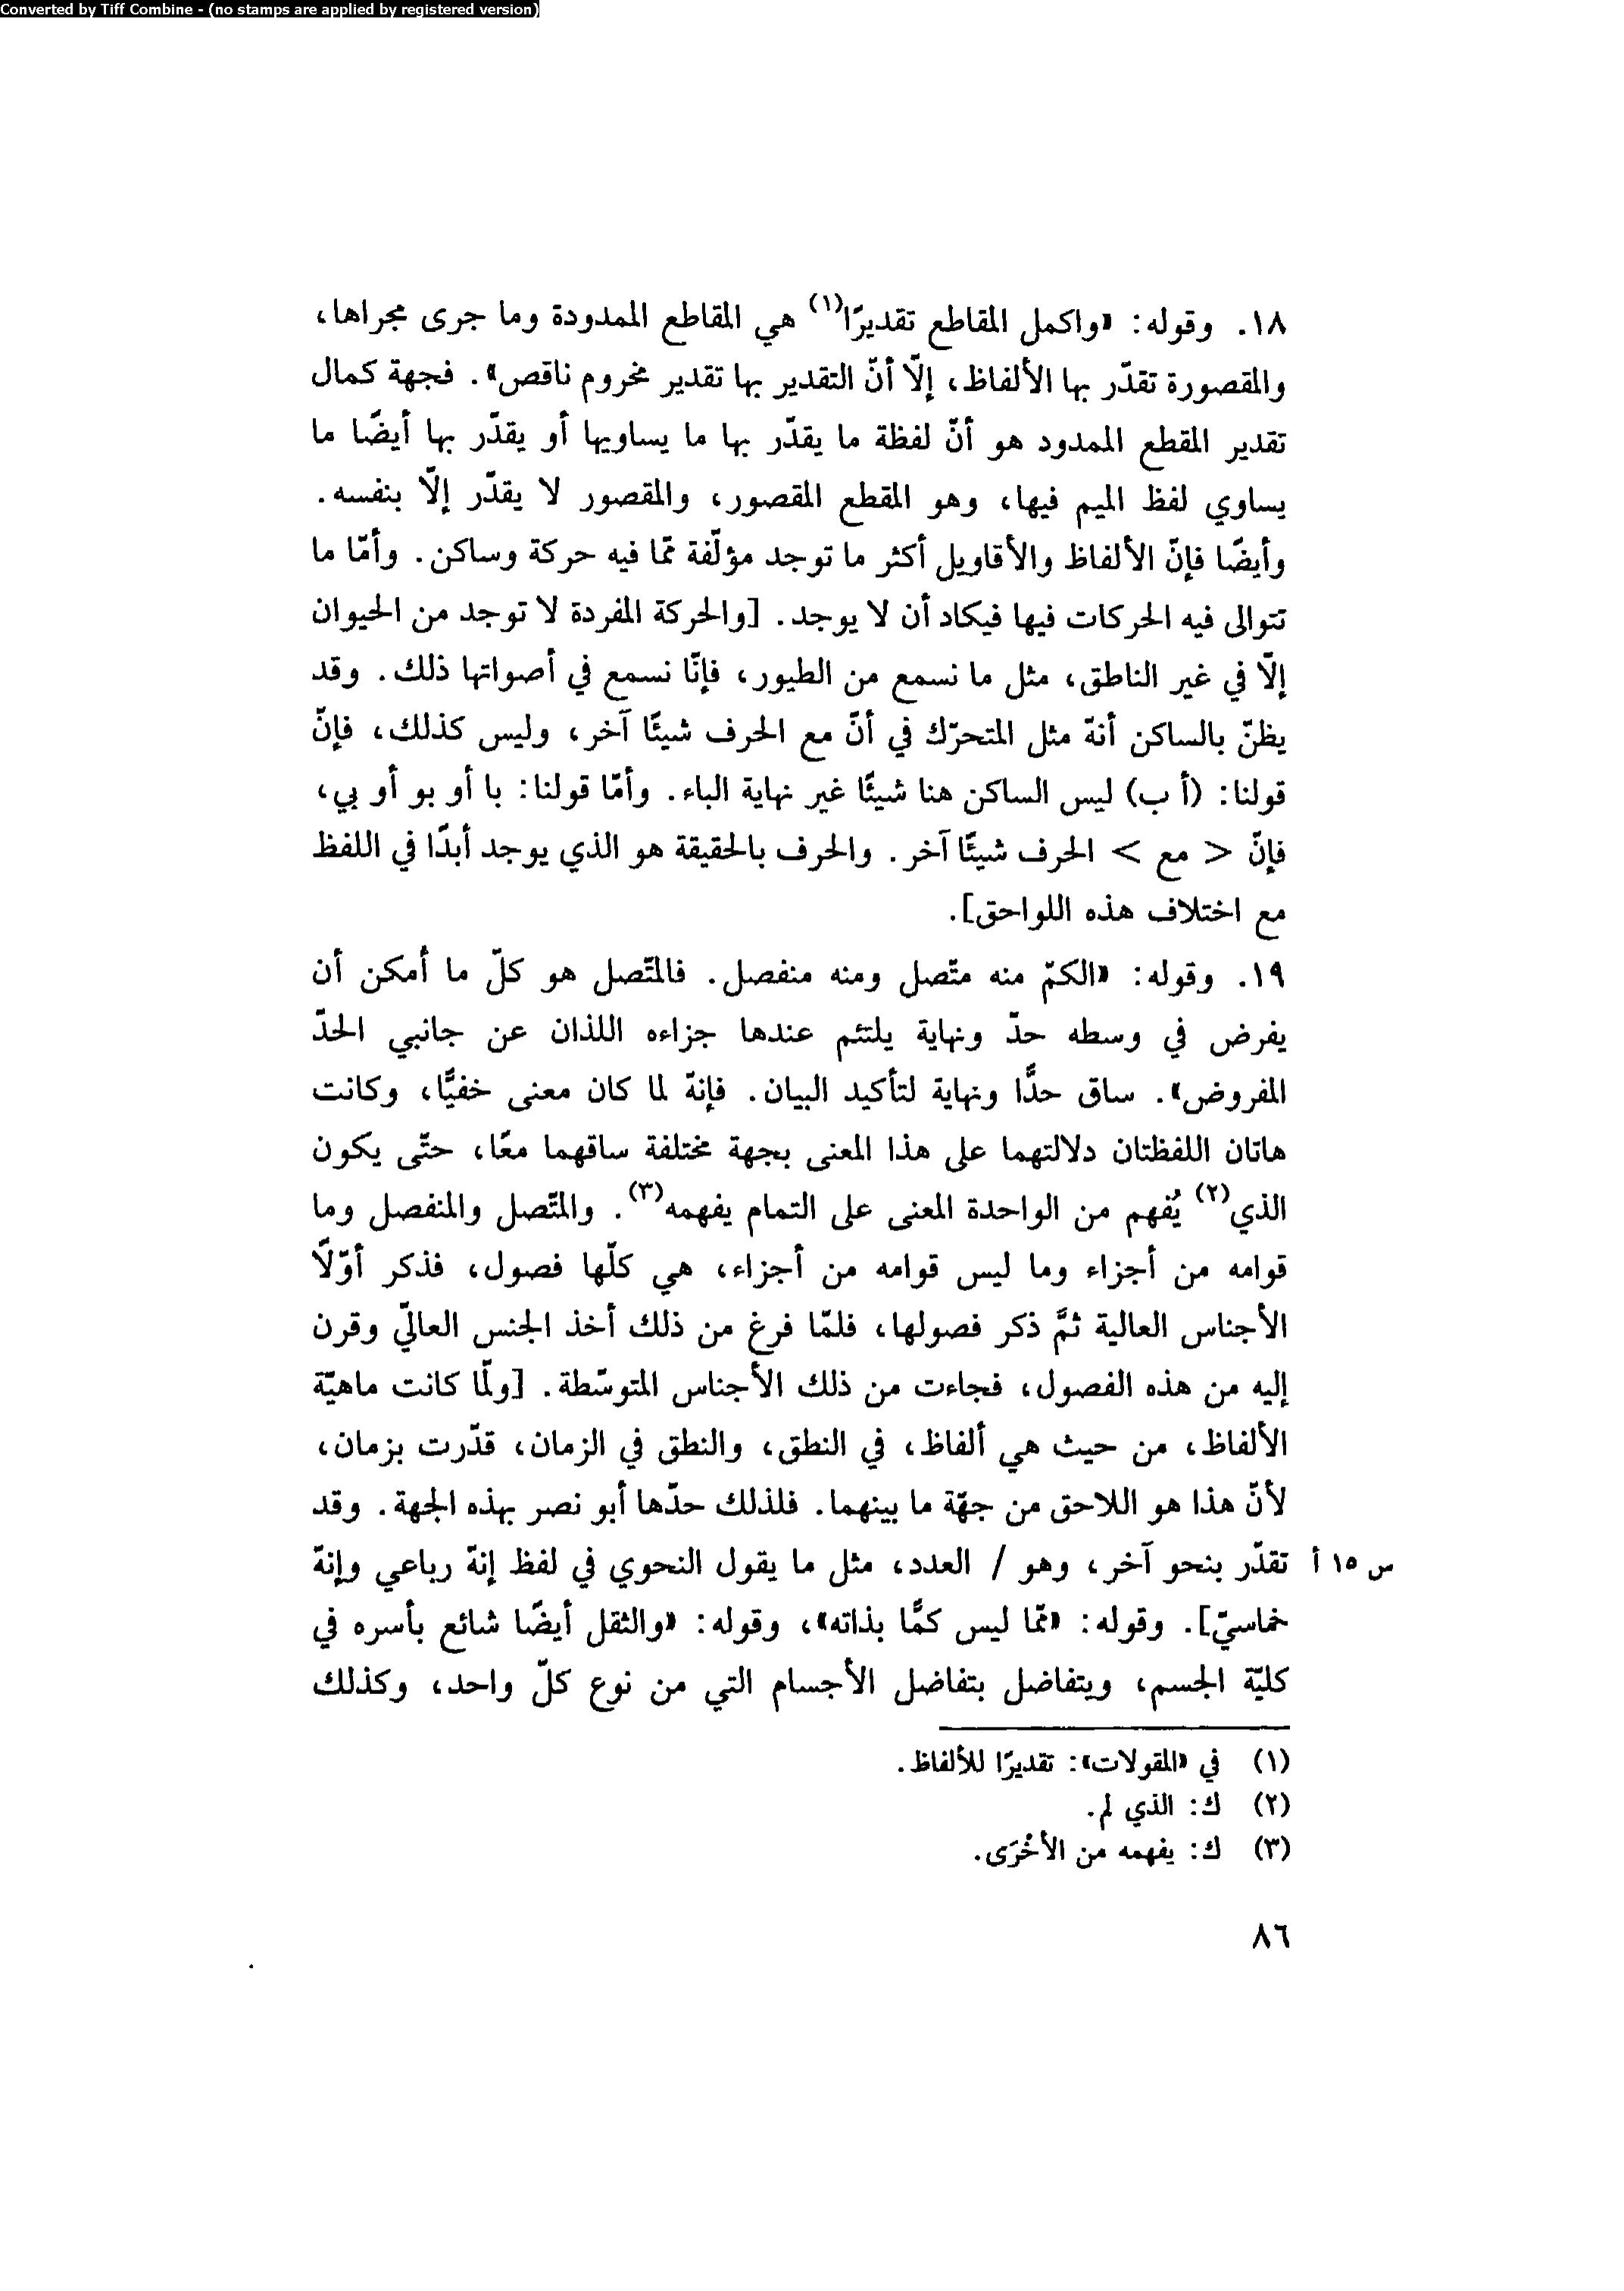 Converted by Tiff Combine - (no stamps are applied by registered version)
١٨. وقوله: «واكمل المقاطع تقديرًا(١) هي المقاطع الممدودة وما جرى مجراها،
والمقصورة تقدّر بها الألفاظ، إلّا أنّ التقدير بها تقدير مخروم ناقص». فجهة كمال
تقدير المقطع الممدود هو أنّ لفظة ما يقدّر بها ما يساويها أو يقدّر بها أيضًا ما
يساوي لفظ الميم فيها، وهو المقطع المقصور، والمقصور لا يقدّر إلّا بنفسه.
وأيضًا فإنّ الألفاظ والأقاويل أكثر ما توجد مؤلّفة ممّا فيه حركة وساكن. وأمّا ما
تتوالى فيه الحركات فيها فيكاد أن لا يوجد. [والحركة المفردة لا توجد من الحيوان
إلّا في غير الناطق، مثل ما نسمع من الطيور، فإنّا نسمع في أصواتها ذلك. وقد
يظنّ بالساكن أنهّ مثل المتحرّك في أنّ مع الحرف شيئًا آخر، وليس كذلك، فإنّ
قولنا: (أ ب) ليس الساكن هنا شيئًا غير نهاية الباء. وأمّا قولنا: با أو بو أو بي،
فإنّ < مع > الحرف شيئًا آخر. والحرف بالحقيقة هو الذي يوجد أبدًا في اللفظ
مع اختلاف هذه اللواحق].
١٩. وقوله: «الكمّ منه متّصل ومنه منفصل. فالمتّصل هو كلّ ما أمكن أن
يفرض في وسطه حدّ ونهاية يلتئم عندها جزاءه اللذان عن جانبي الحدّ
المفروض». ساق حدًّا ونهاية لتأكيد البيان. فإنهّ لما كان معنى خفيًّا، وكانت
هاتان اللفظتان دلالتهما على هذا المعنى بجهة مختلفة ساقهما معًا، حتّى يكون
الذي(٢) يُفهم من الواحدة المعنى على التمام يفهمه(٣). والمتّصل والمنفصل وما
قوامه من أجزاء وما ليس قوامه من أجزاء، هي كلّها فصول، فذكر أوّلًا
الأجناس العالية ثمَّ ذكر فصولها، فلمّا فرغ من ذلك أخذ الجنس العاليّ وقرن
إليه من هذه الفصول، فجاءت من ذلك الأجناس المتوسّطة. [ولمّا كانت ماهيّة
الألفاظ، من حيث هي ألفاظ، في النطق، والنطق في الزمان، قدّرت بزمان،
لأنّ هذا هو اللاحق من جهّة ما بينهما. فلذلك حدّها أبو نصر بهذه الجهة. وقد
س ١٥ أ تقدّر بنحو آخر، وهو / العدد، مثل ما يقول النحوي في لفظ إنهّ رباعي وإنهّ
خماسيّ]. وقوله: «ممّا ليس كمًّا بذاته»، وقوله: «والثقل أيضًا شائع بأسره في
كليّة الجسم، ويتفاضل بتفاضل الأجسام التي من نوع كلّ واحد، وكذلك
(١) في «المقولات»: تقديرًا للألفاظ.
(٢) ك: الذي لم.
(٣) ك: يفهمه من الأخْرَى.
٨٦